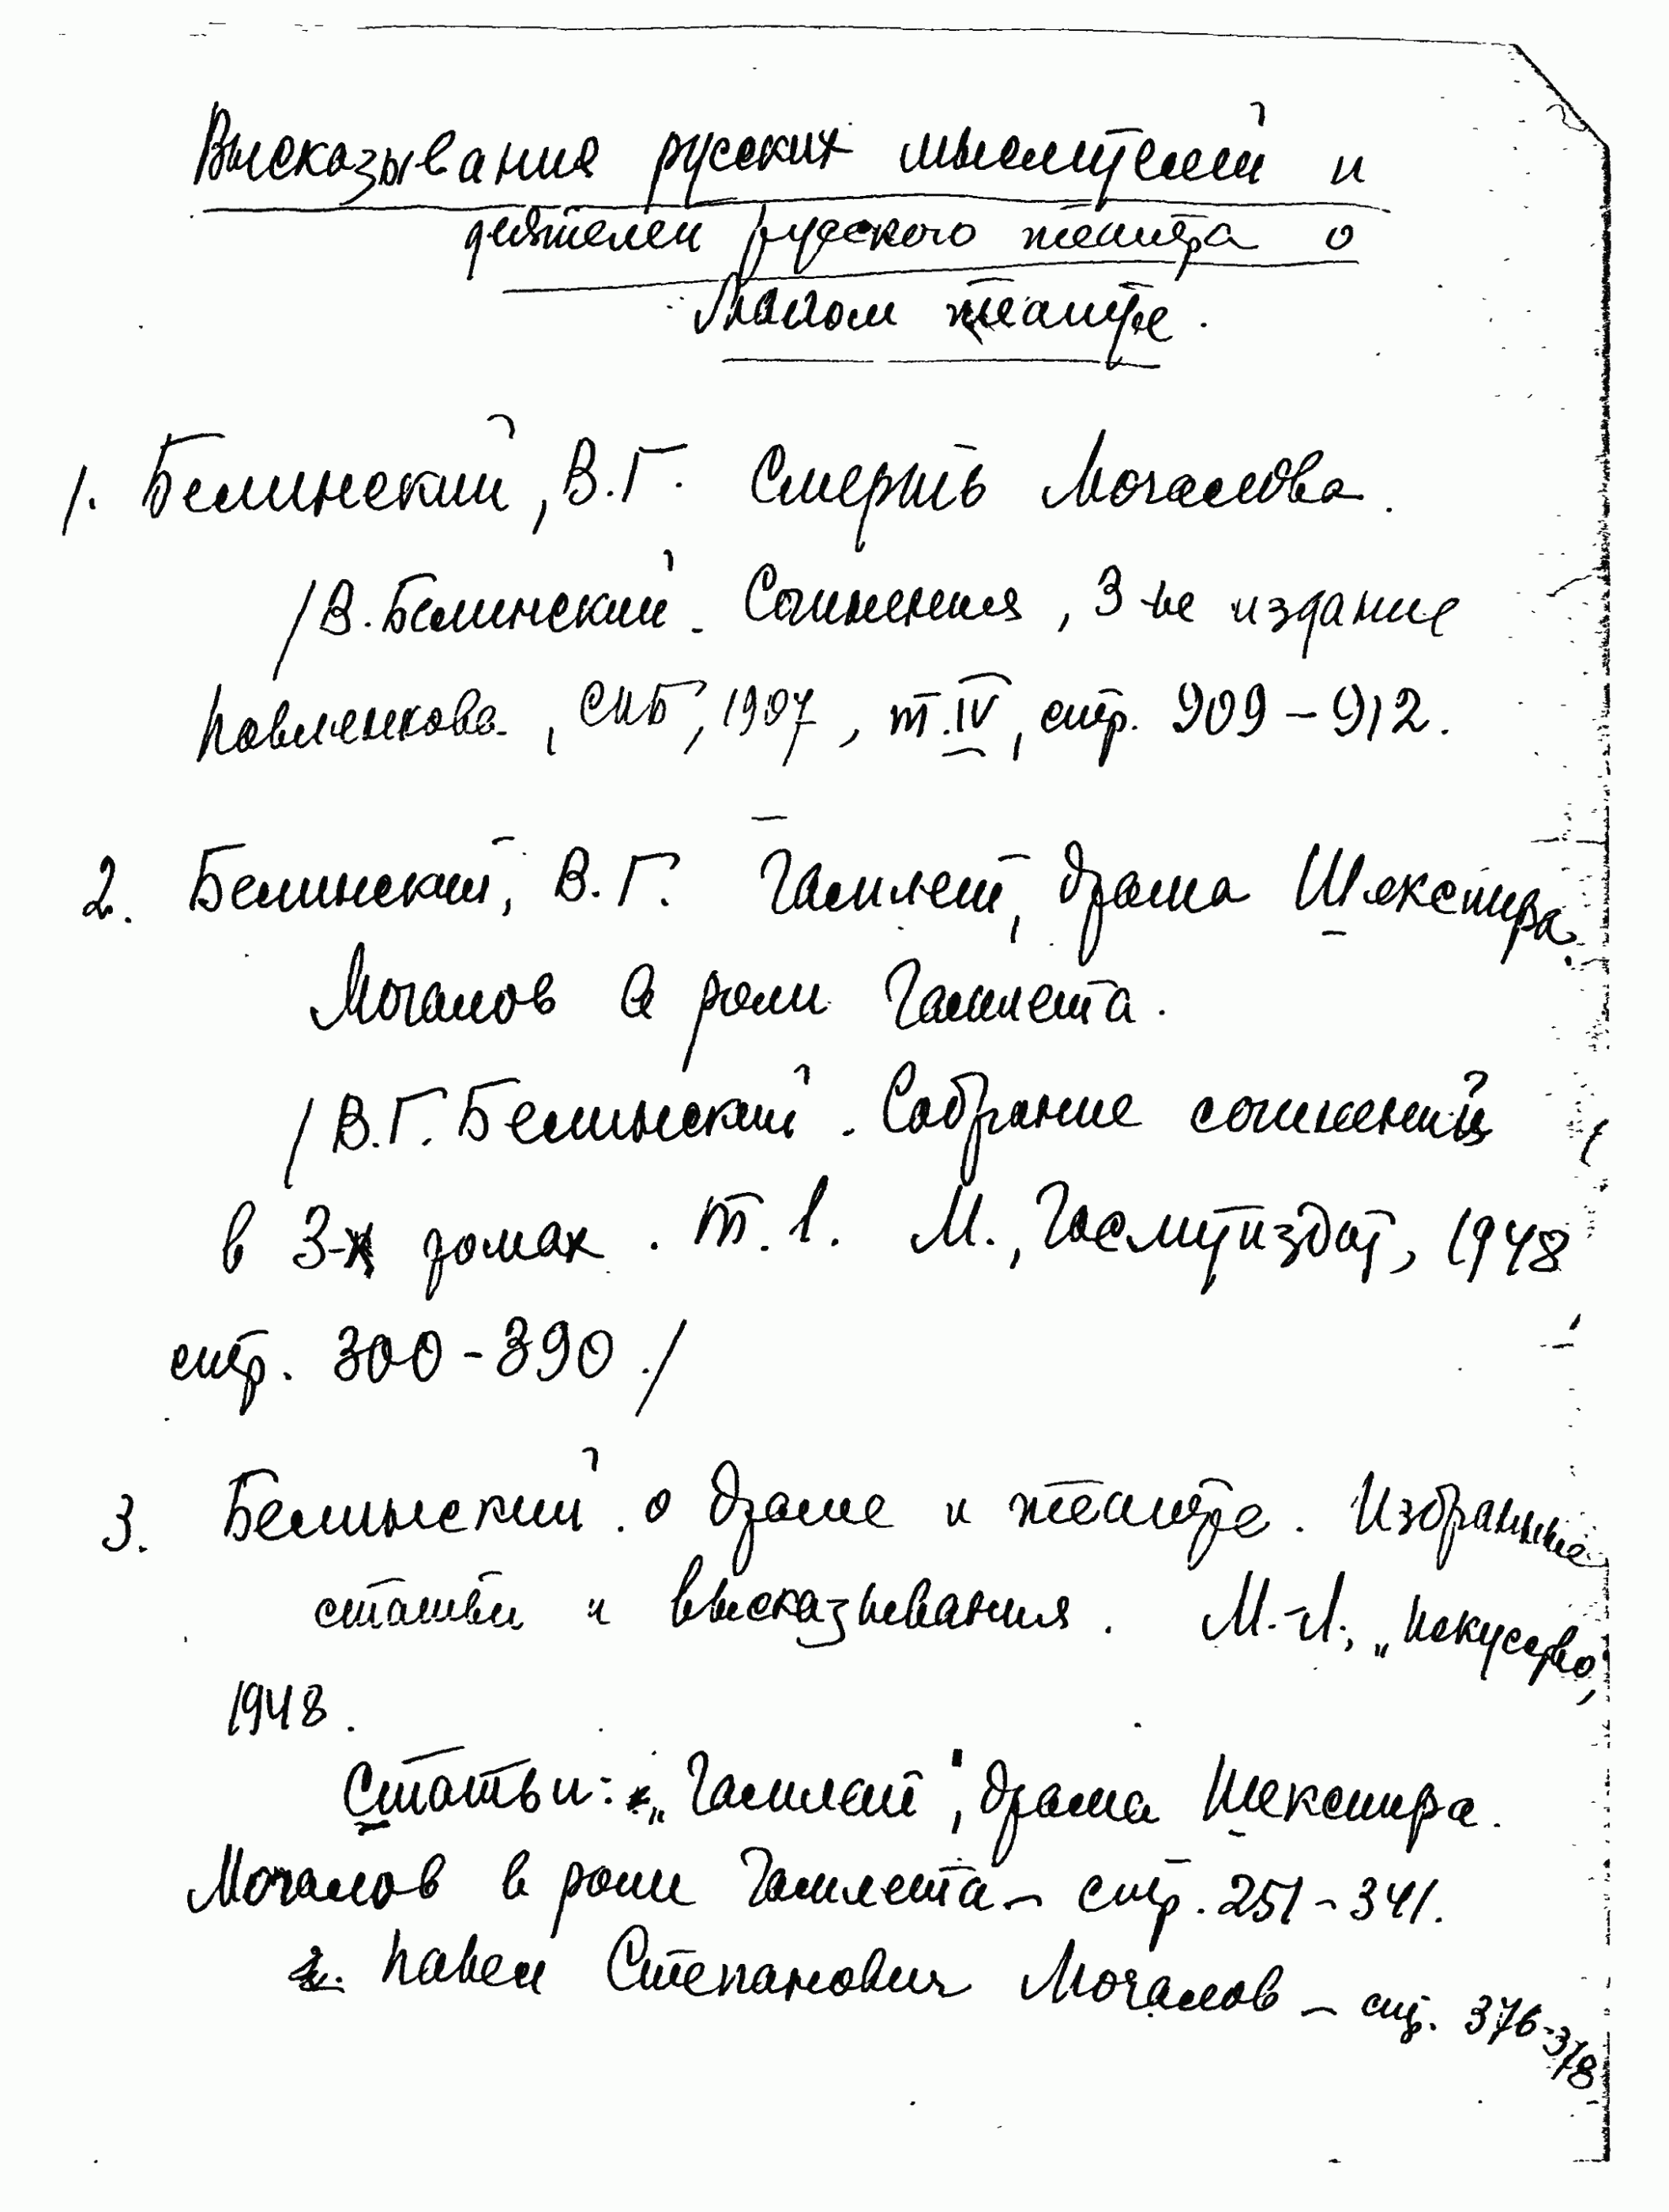 Высказывания русских мыслителей и
деятелей русского театра о
Малом театре.
1. Белинский, В.Г. Смерть Мочалова.
/В. Белинский. Сочинения, 3-ье издание
Павленкова, СПБ, 1907, т. IV, стр. 909-912.
2. Белинский, В.Г. Гамлет, драма Шекспира.
Мочалов в роли Гамлета.
/В.Г. Белинский. Собрание сочинений
в 3-х томах. т. 1. М., Гослитиздат, 1948
стр. 300-390./
3. Белинский. о драме и театре. Избранные
статьи и высказывания. М.-Л., „Искусство,
1948.
Статьи: „Гамлет", драма Шекспира.
Мочалов в роли Гамлета - стр. 251-341.
Павел Степанович Мочалов - стр. 376-378